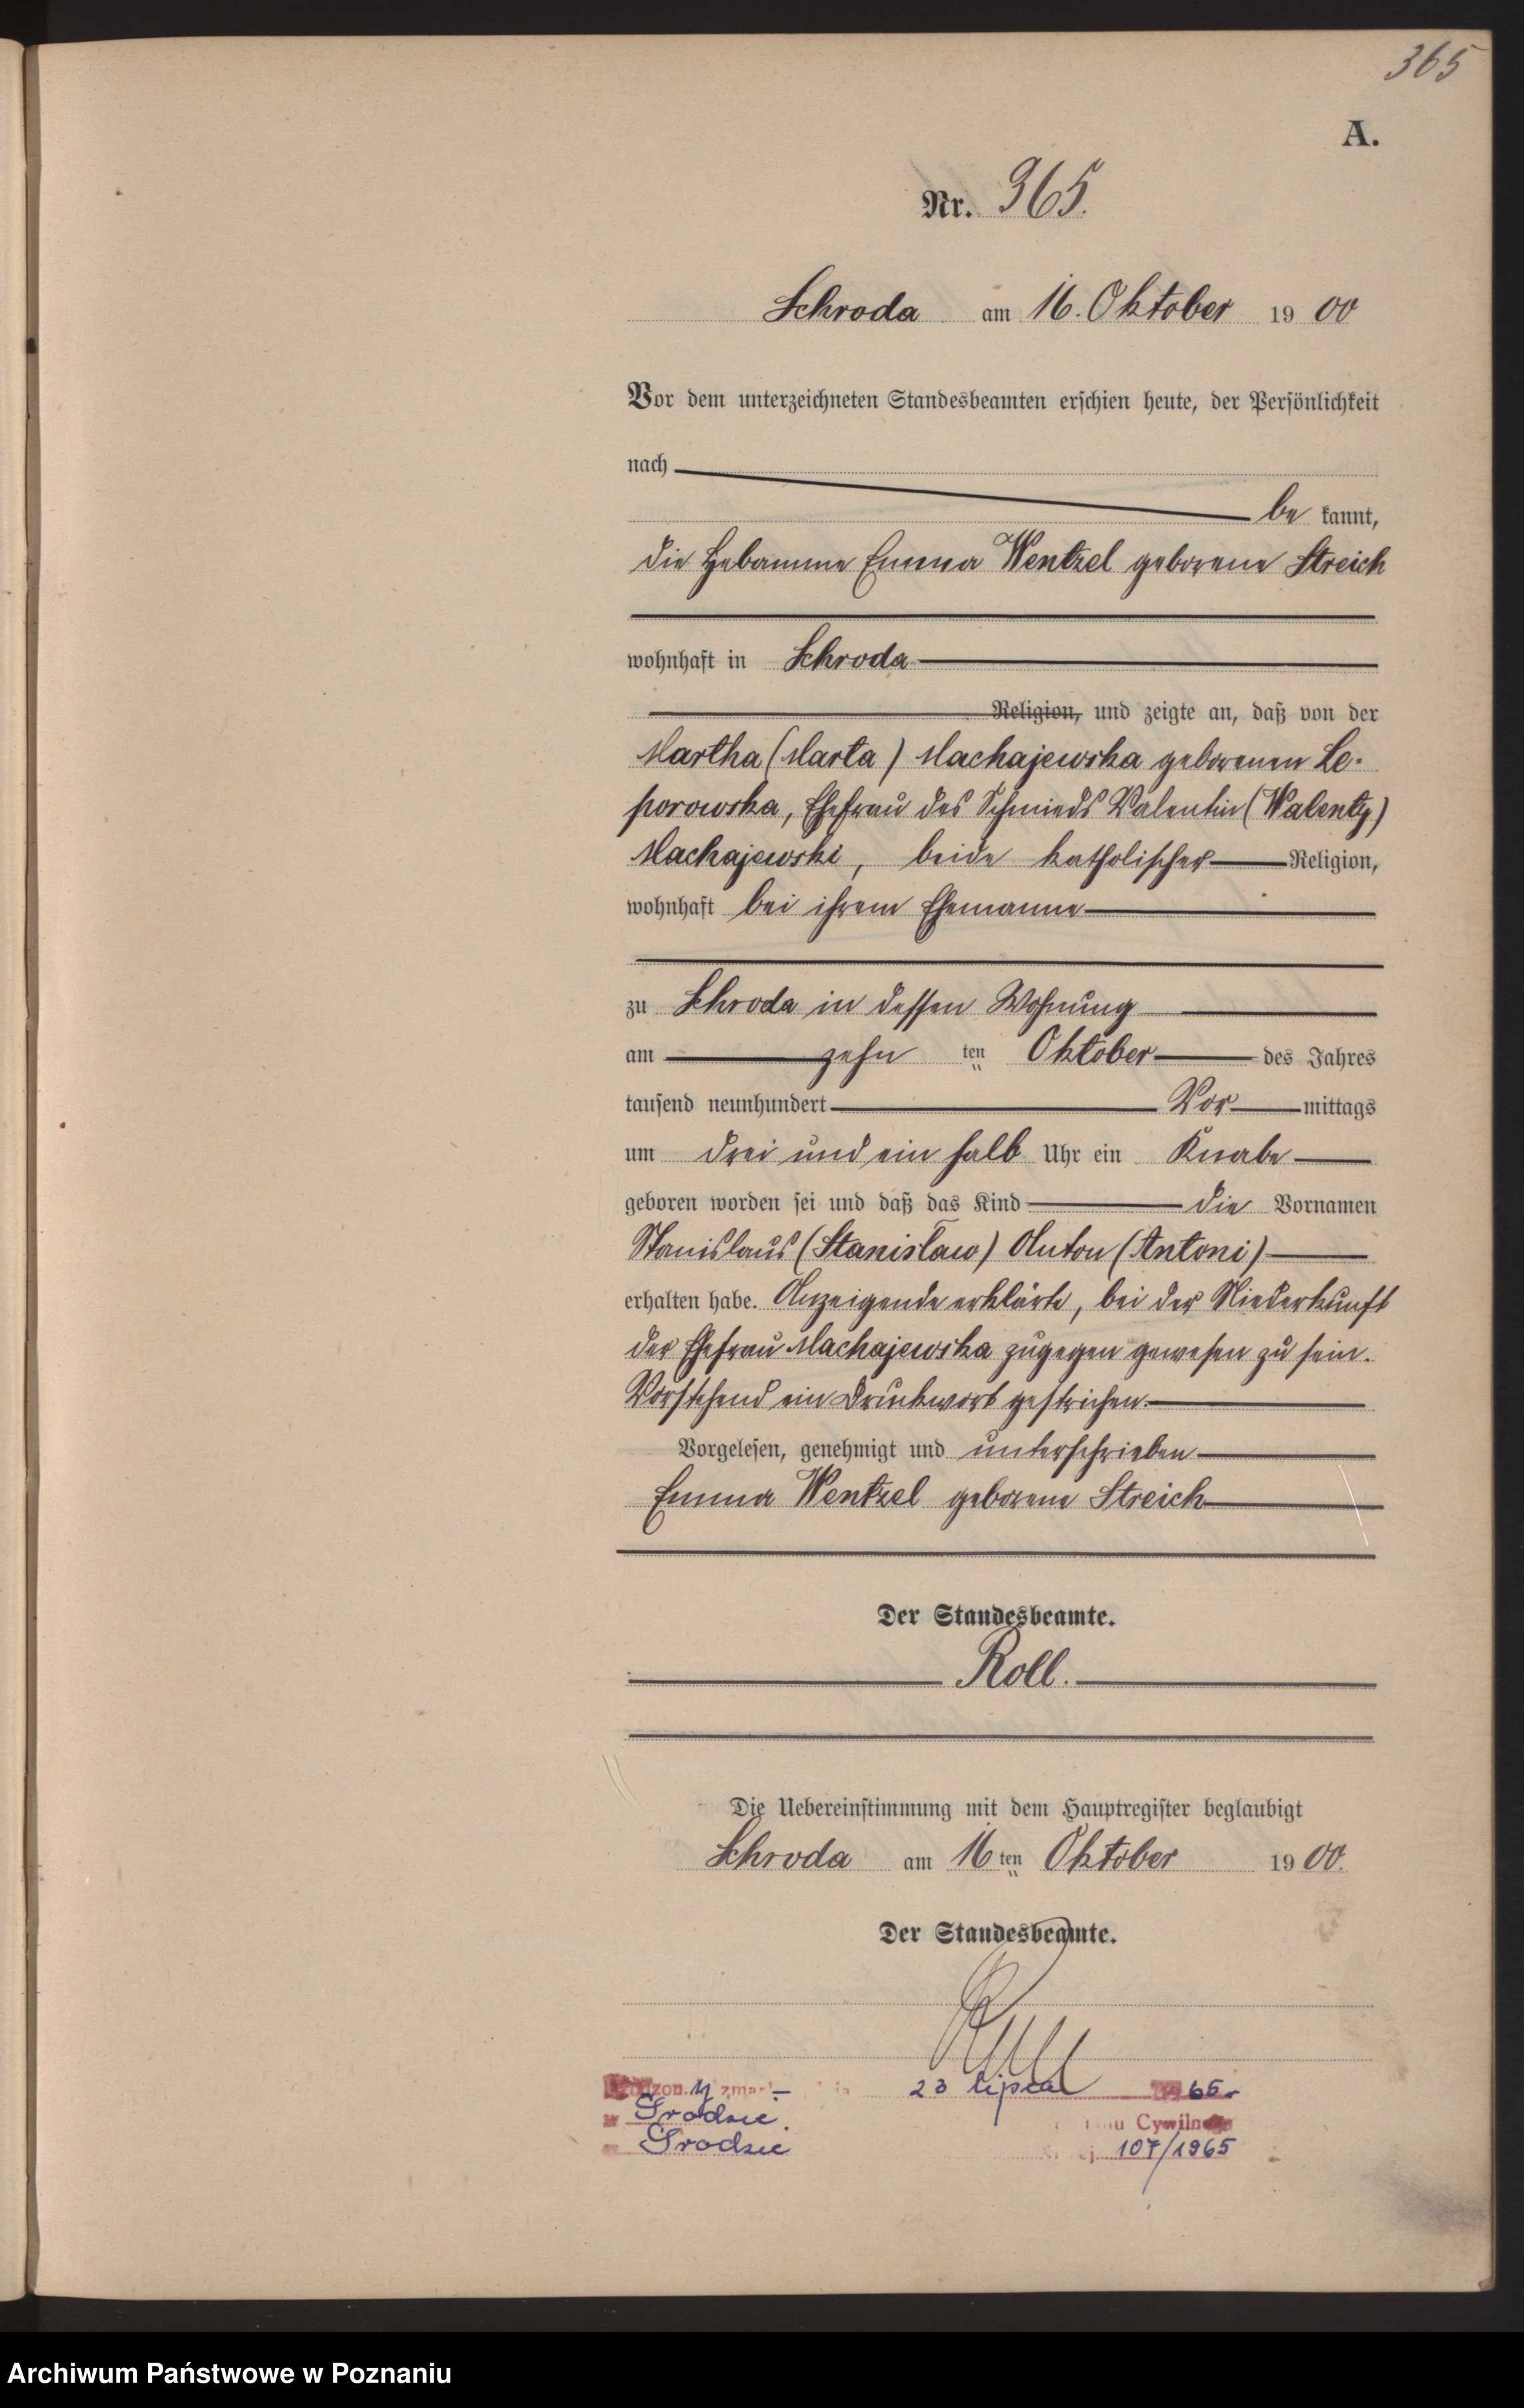 365
A.
Nr. 365.
Schroda am 16. Oktober 1900
Vor dem unterzeichneten Standesbeamten erschien heute, der Persönlichkeit
nach
be kannt,
die Hebamme Emma Wentzel geborene Streich
wohnhaft in Schroda
Religion, und zeigte an, daß von der
Martha (Marta) Machajewska geborenen Le-
porowska, Ehefrau des Schmieds Valentin (Walenty)
Machajewski, beide katholischer Religion,
wohnhaft bei ihrem Ehemanne
zu Schroda in dessen Wohnung
am zehn ten Oktober des Jahres
tausend neunhundert Vor mittags
um drei und ein halb Uhr ein Knabe
geboren worden sei und daß das Kind die Vornamen
Stanislaus (Stanisław) Anton (Antoni)
erhalten habe. Anzeigende erklärte, bei der Niederkunft
der Ehefrau Machajewska zugegen gewesen zu sein.
Vorstehend ein Druckwort gestrichen.
Vorgelesen, genehmigt und unterschrieben
Emma Wentzel geborene Streich
Der Standesbeamte.
Roll.
Die Uebereinstimmung mit dem Hauptregister beglaubigt
Schroda am 16ten Oktober 1900.
Der Standesbeamte.
Roll
23 lipca 1965.
Grodzie.
Cywilnego
Grodzie
107/1965
Archiwum Państwowe w Poznaniu